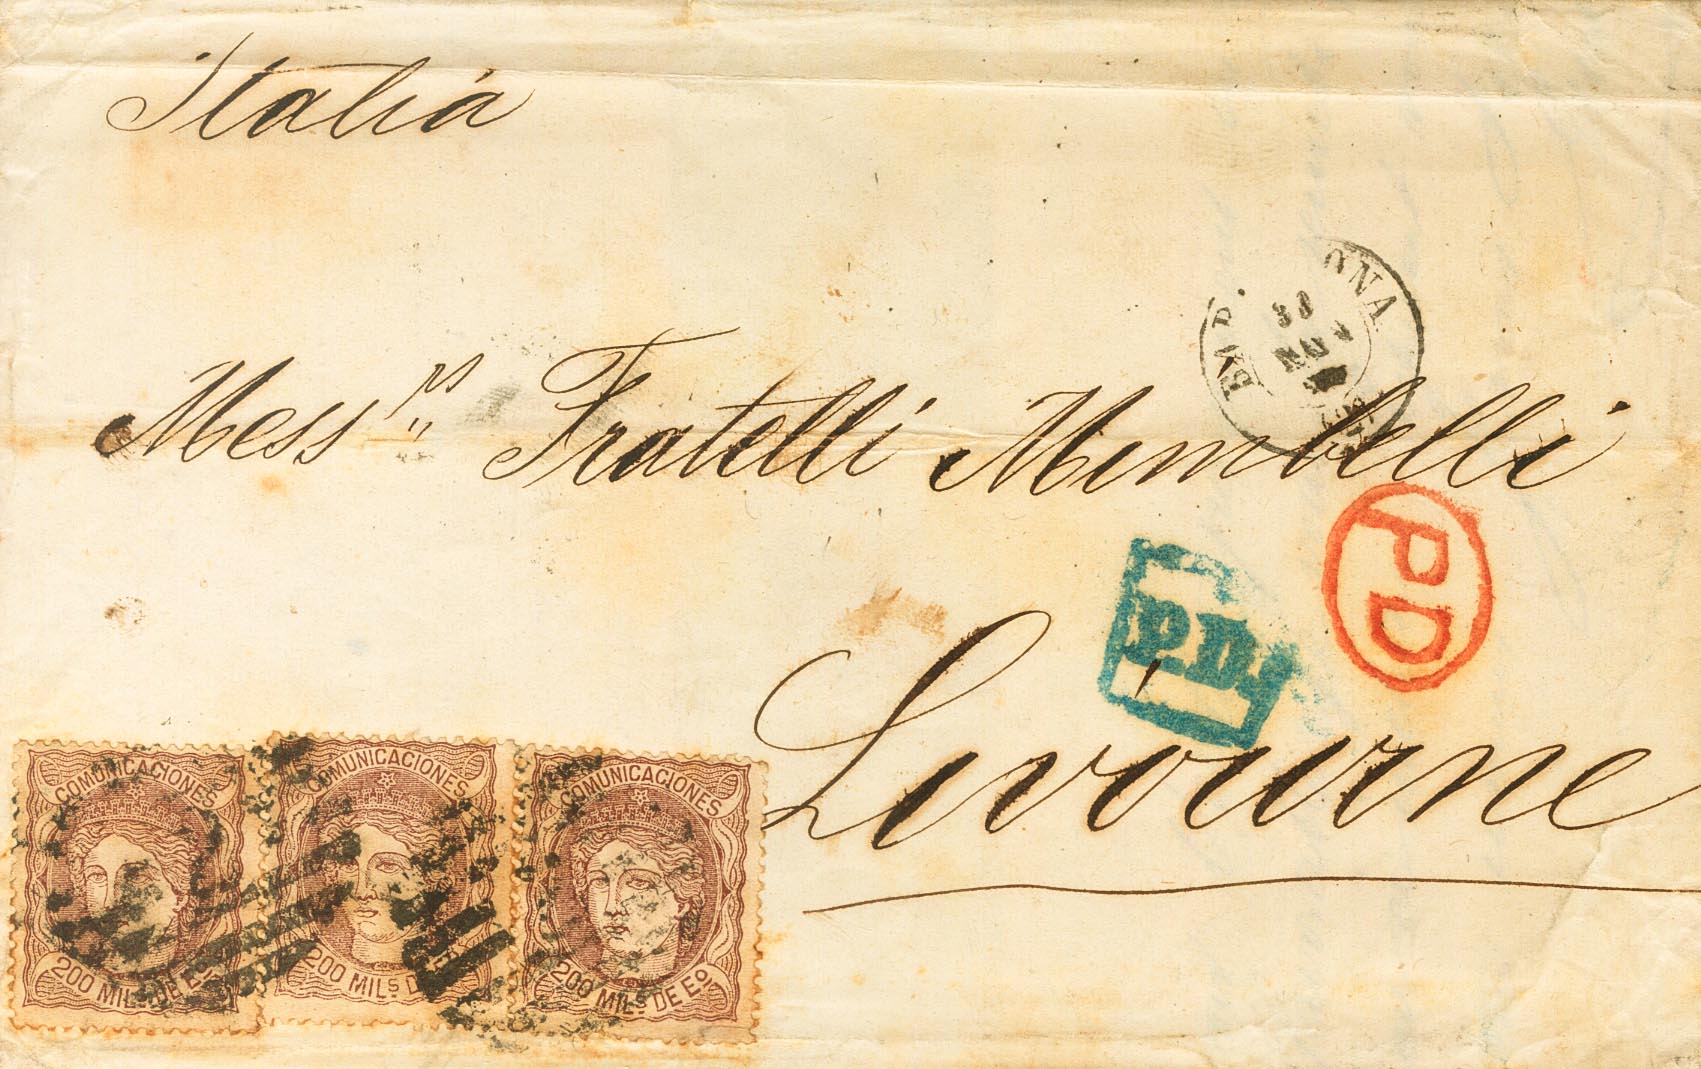 Italia
Mess.rs Fratelli Mimbelli
Livourne
PD
P.D.
COMUNICACIONES
200 MILs DE Eo
COMUNICACIONES
200 MILs D
COMUNICACIONES
200 MILs DE Eo